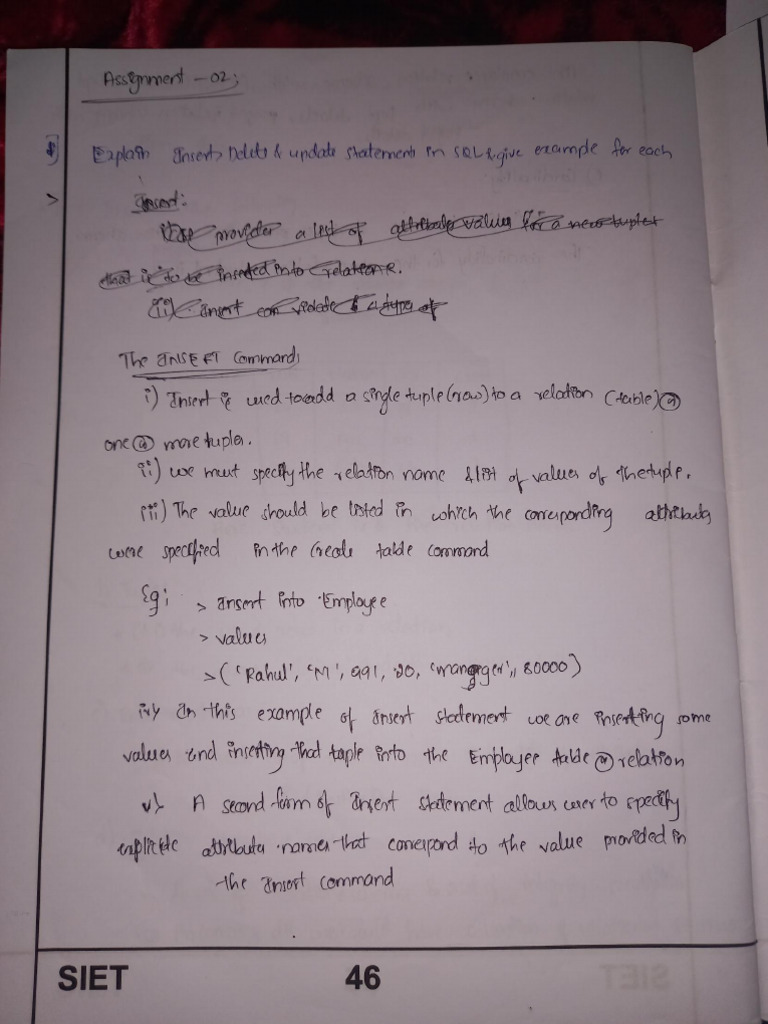 Assignment - 02;
1] Explain Insert, Delete & update statement in SQL & give example for each
> Insert:
provider a list of attribute values for a new tuple
that is to be inserted into relation R.
(ii) Insert can violate 4 type of
The INSERT Command;
i) Insert is used to add a single tuple (row) to a relation (table) or
one or more tuples.
ii) we must specify the relation name & list of values of the tuple.
iii) The value should be listed in which the corresponding attributes
were specified in the Create table command
Eg: > insert into Employee
> values
> ('Rahul', 'M', 991, 20, 'manager', 80000')
iv) In this example of insert statement we are inserting some
values and inserting that tuple into the Employee table or relation
v) A second form of Insert statement allows user to specify
attribute names that correspond to the value provided in
the insert command
SIET 46
SIET